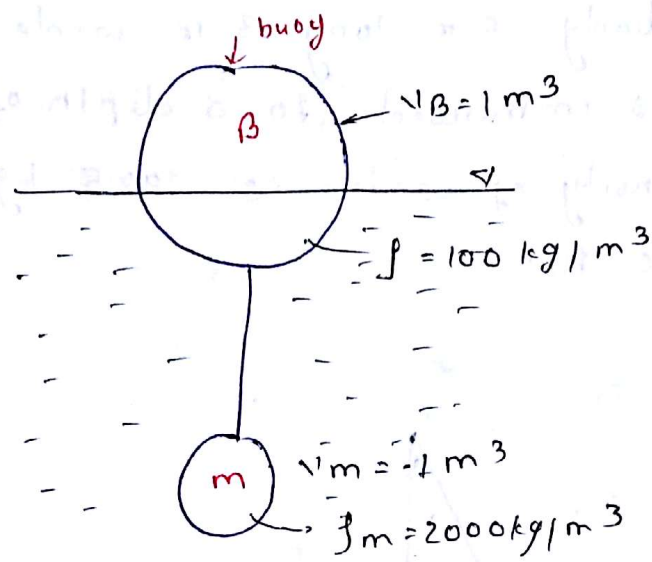 buoy
B
∀B = 1 m³
ρ = 100 kg/m³
m
∀m = .1 m³
ρm = 2000 kg/m³